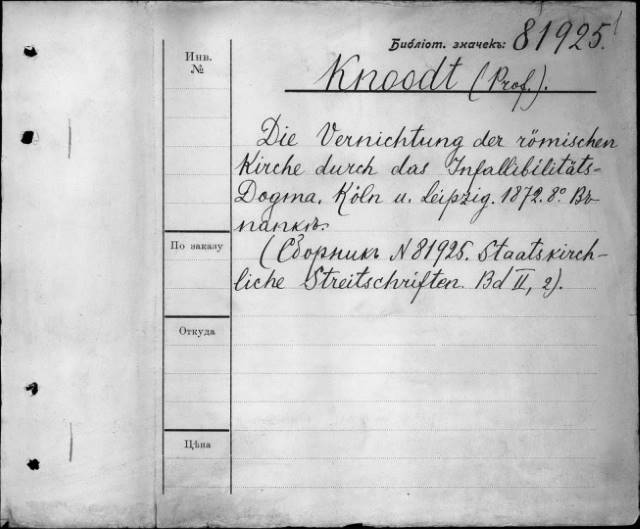 Библіот. значекъ: 81925.
Инв.
№
Knoodt (Prof.).
Die Vernichtung der römischen
Kirche durch das Infallibilitäts-
Dogma. Köln u. Leipzig. 1872. 8º. Въ
папкѣ.
По заказу
(Сборникъ N 81925. Staatskirch-
liche Streitschriften. Bd II, 2).
Откуда
Цѣна